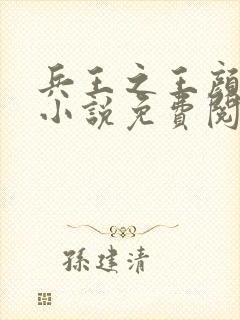 兵王之王顔
小說免費閱
孫建清